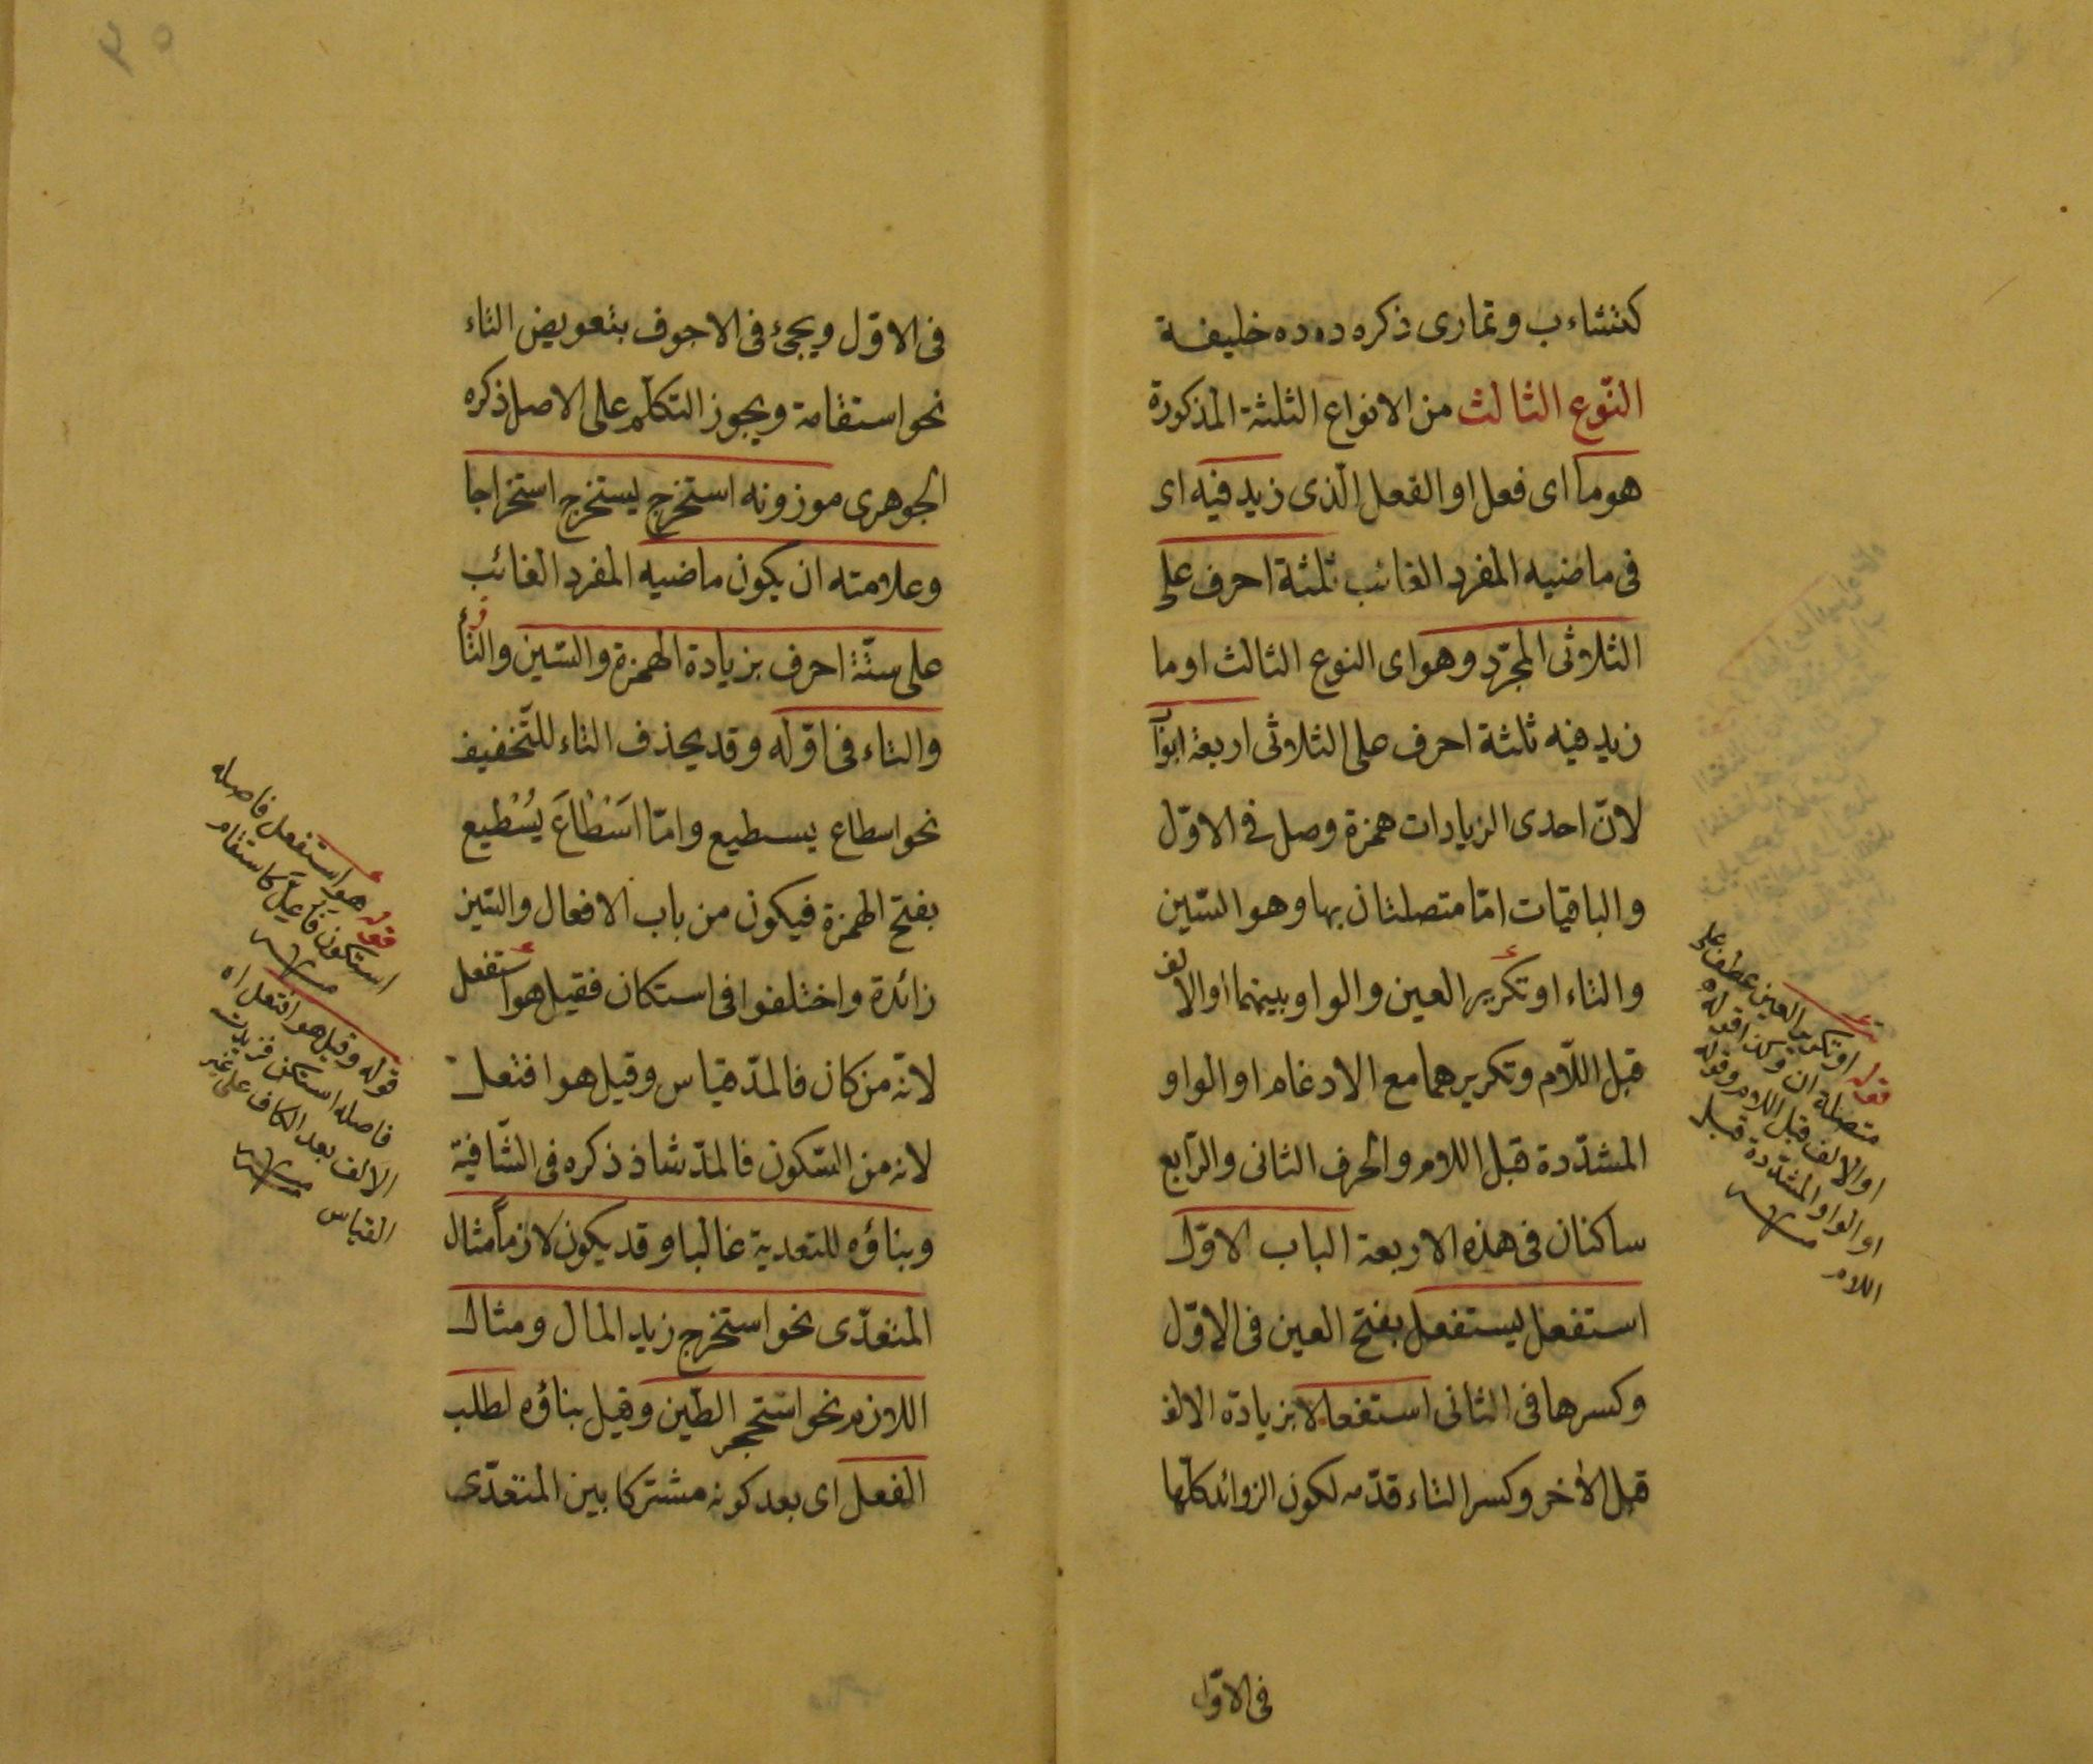 كتثاءب وتمارى ذكره دده خليفة
النّوع الثالث من الانواع الثلثة المذكورة
هو ما اى فعل او الفعل الّذى زيد فيه اى
فى ماضيه المفرد الغائب ثلثة احرف على
الثلاثى المجرّد وهو اى النوع الثالث او ما
زيد فيه ثلثة احرف على الثلاثى اربعة ابواب
لانّ احدى الزيادات همزة وصل فى الاوّل
والباقيات امّا متصلتان بها وهو السّين
والتاء او تكرير العين والواو بينهما او الالف
قبل اللّام وتكريرهما مع الادغام او الواو
المشدّدة قبل اللام والحرف الثانى والرّابع
ساكنان فى هذه الاربعة الباب الاوّل
استفعل يستفعل بفتح العين فى الاوّل
وكسرها فى الثانى استفعالا بزيادة الالف
قبل الأخر وكسر التاء قدّمه لكون الزوائد كلّها
فى الاوّل
قوله او تكرير العين عطف على
متصلتان وكذا قوله
او الالف قبل اللام وقوله
او الواو المشدّدة قبل
اللام
فى الاوّل ويجئ فى الاجوف بتعويض التاء
نحو استقامة ويجوز التكلّم على الاصل ذكره
الجوهرى موزونه استخرج يستخرج استخراجا
وعلامته ان يكون ماضيه المفرد الغائب
على ستّة احرف بزيادة الهمزة والسّين والتاء
والتاء فى اوّله وقد يحذف التاء للتّخفيف
نحو اسطاع يسطيع وامّا اَسْطَاعَ يُسْطيع
بفتح الهمزة فيكون من باب الافعال والسّين
زائدة واختلفوا فى استكان فقيل هو استفعل
لانّه من كان فالمدّ قياس وقيل هو افتعل
لانه من السّكون فالمدّ شاذ ذكره فى الشّافية
وبناؤه للتعدية غالبا وقد يكون لازماً مثال
المتعدّى نحو استخرج زيد المال ومثال
اللازم نحو استحجر الطّين وقيل بناؤه لطلب
الفعل اى بعد كونه مشتركا بين المتعدّى
قوله هو استفعل فاصله
استكون فاعلّ كاستقام
قوله وقيل هو افتعل اه
فاصله استكن فزيدت
الالف بعد الكاف على غير
القياس